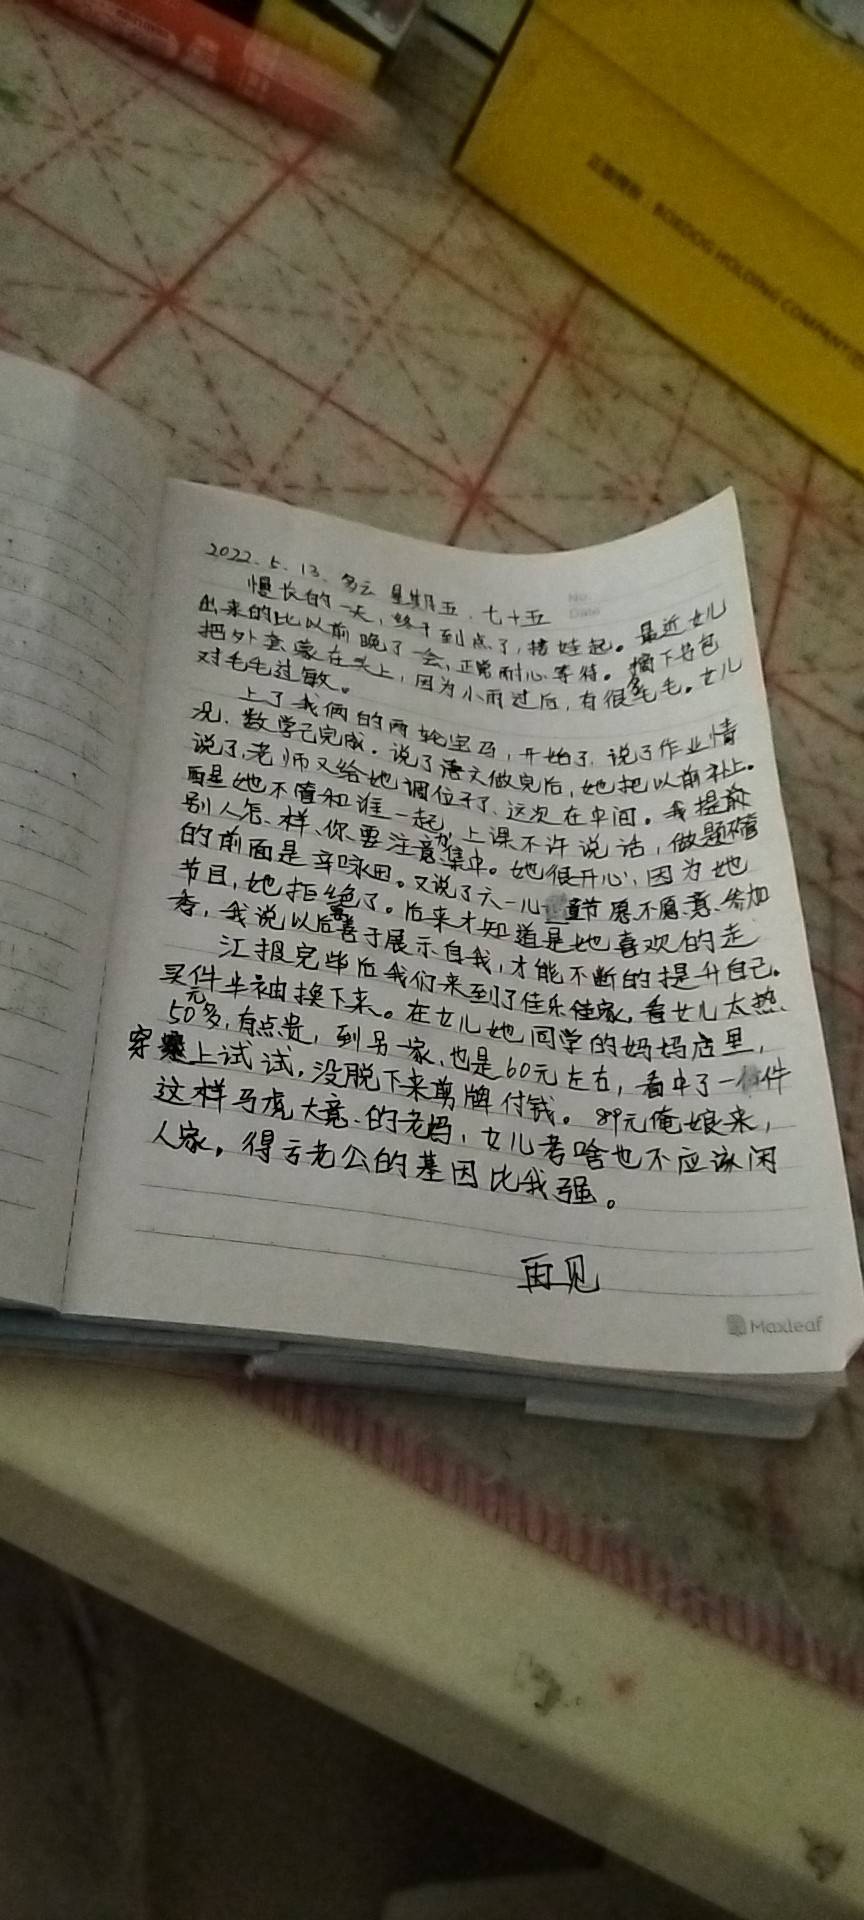 BOXDOG HOLDING COMPANY
No.
Date
2022.5.13. 多云 星期五. 七十五
慢长的一天,终于到点了,接娃起。最近女儿
出来的比以前晚了一会,正常耐心等待。摘下书包
把外套蒙在头上,因为小雨过后,有很多毛毛。女儿
对毛毛过敏。
上了我俩的两轮宝马,开始了.说了作业情
况.数学已完成.说了语文做完后,她把以前补上。
说了老师又给她调位子了.这次在中间。我提前
她不管和谁一起,上课不许说话,做题不管
别人怎、样、你要注意力集中。她很开心,因为她
的前面是辛咏田。又说了六一儿 节愿不愿意、参加
节目,她拒绝了。后来才知道是她喜欢的走
秀,我说以后要善于展示自我,才能不断的提升自己。
汇报完毕后我们来到了佳乐佳家,看女儿太热、
买件半袖换下来。在女儿她同学的妈妈店里,
50多元,有点贵,到另一家,也是60元左右,看中了一件
穿上试试,没脱下来剪牌付钱。89元俺娘来,
这样马虎大意、的老妈,女儿考啥也不应该闲
人家。得亏老公的基因比我强。
再见
Maxleaf